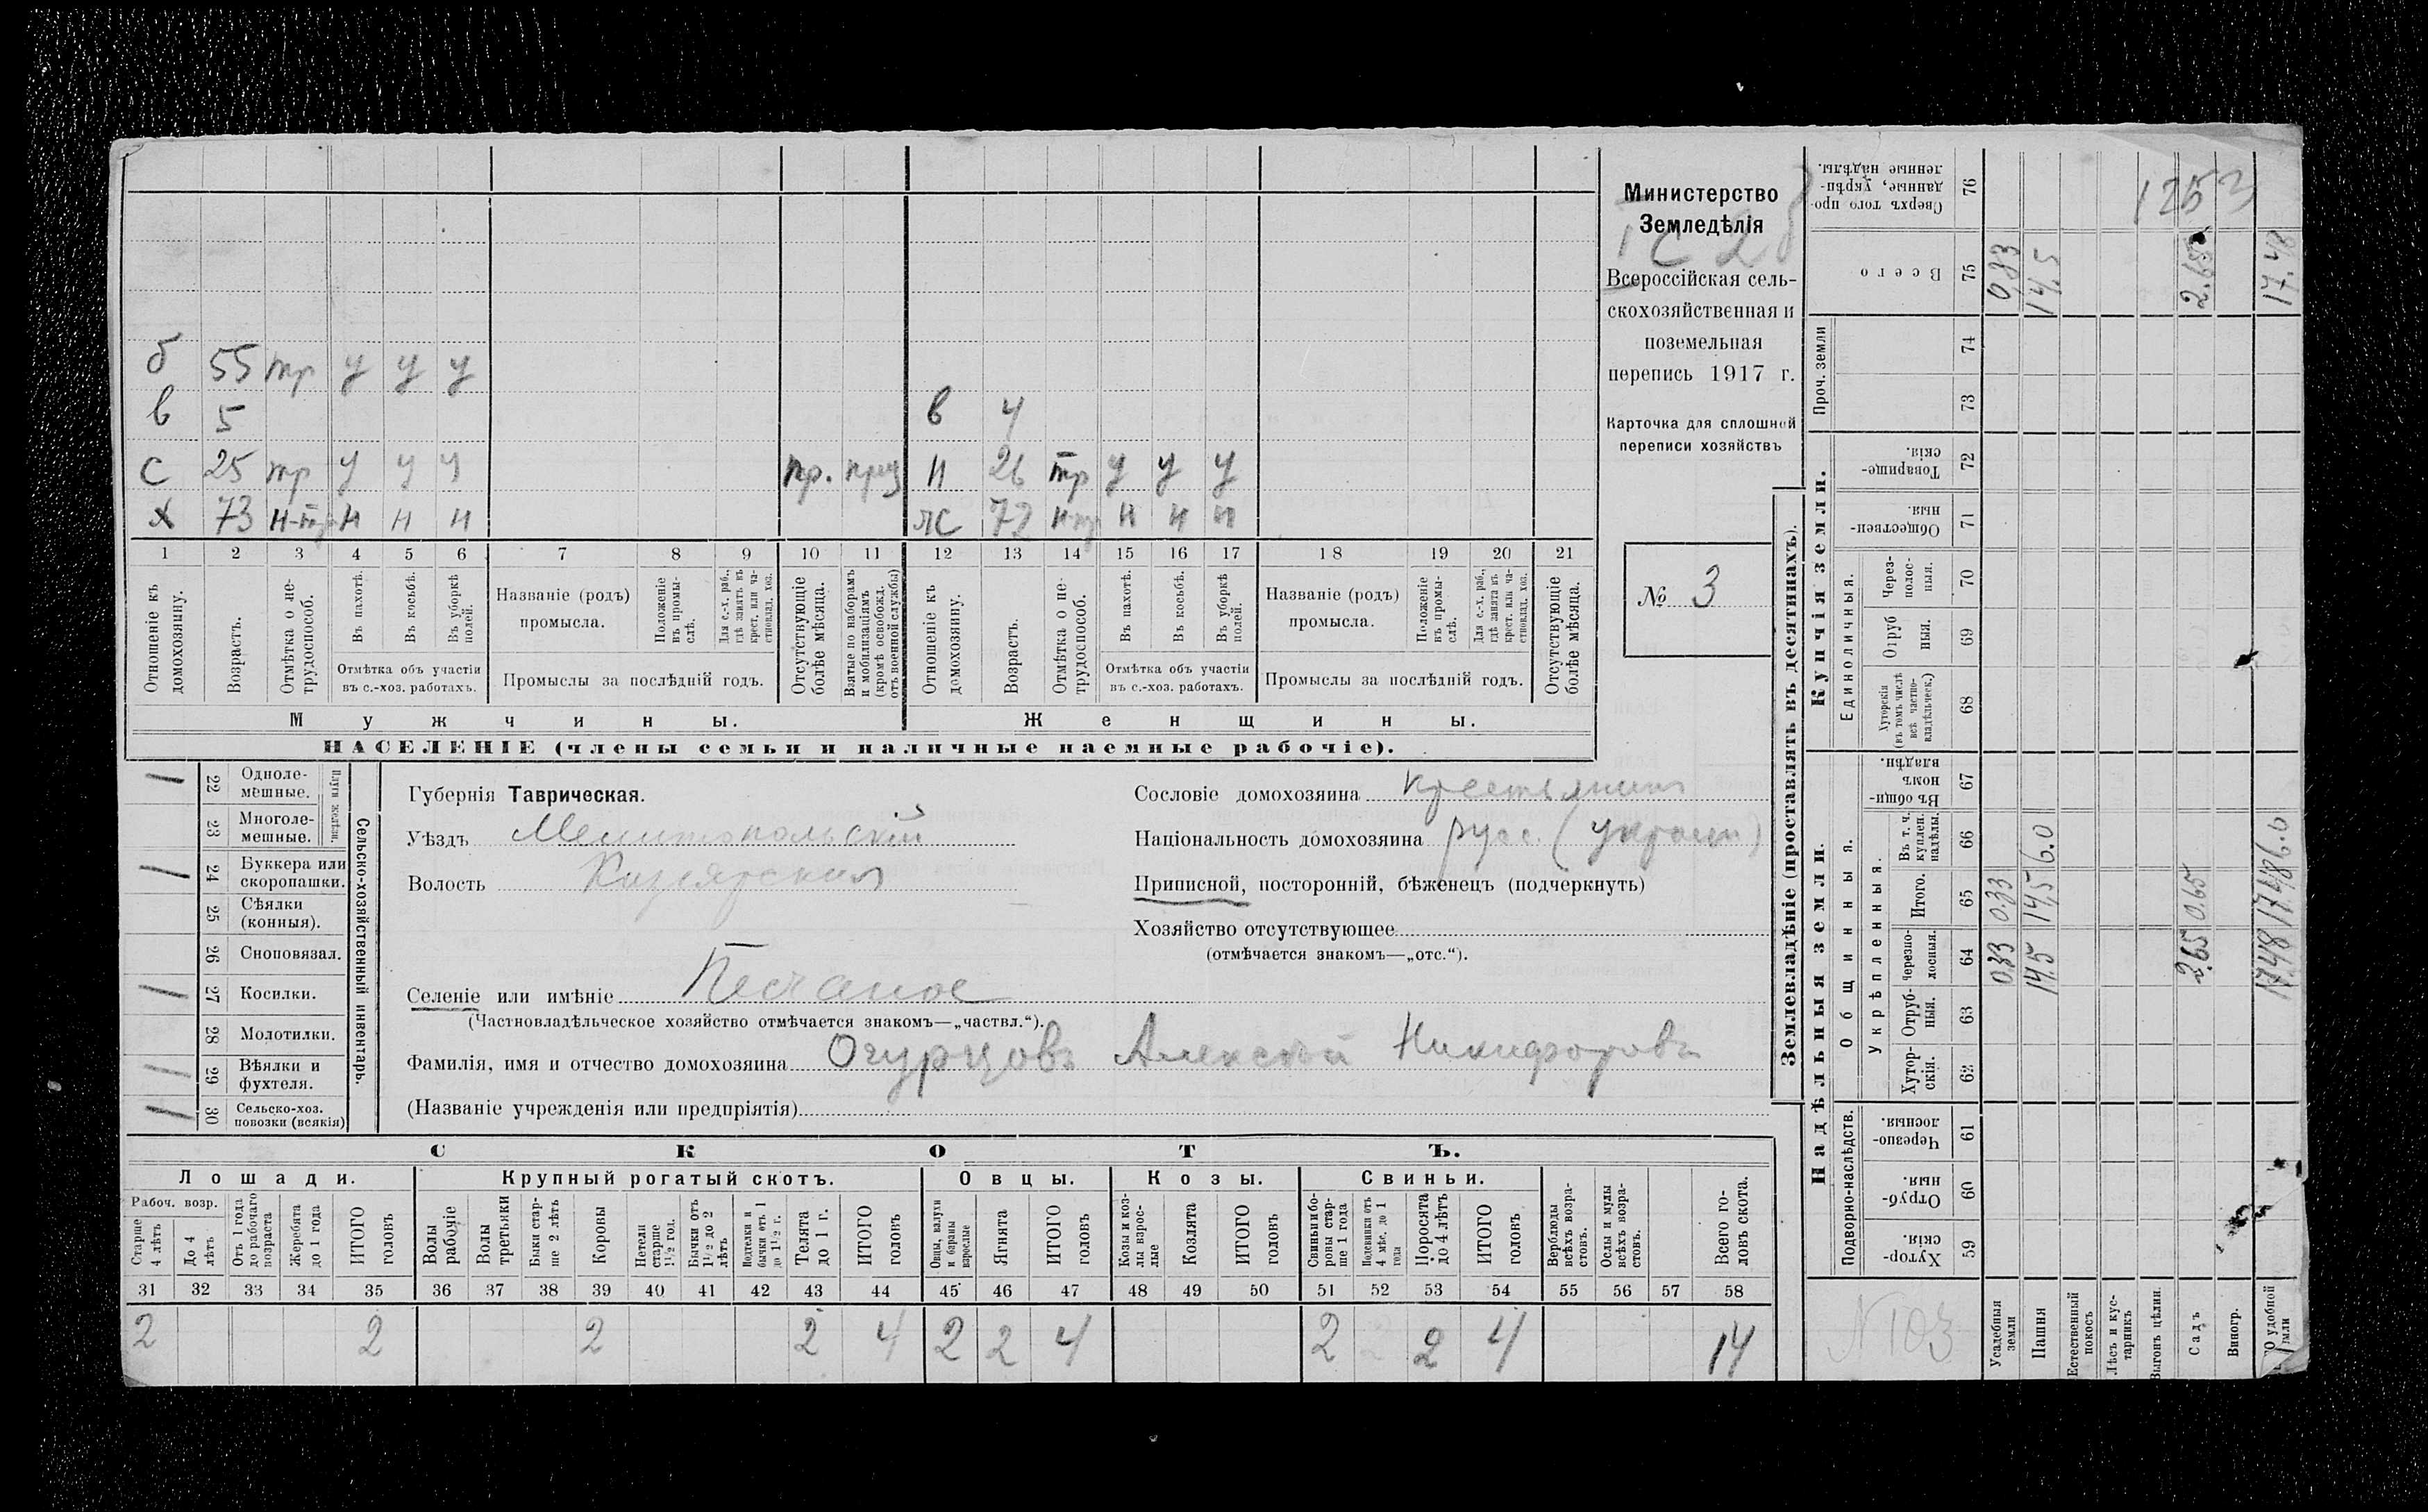 б 55 тр у у у
в 5 в 4
с 25 тр у у у пр. приз н 26 тр у у у
х 73 н-тр н н н жс 72 н-тр н н н
1 2 3 4 5 6 7 8 9 10 11 12 13 14 15 16 17 18 19 20 21
Отношеніе къ домохозяину.
Возрастъ.
Отмѣтка о не-трудоспособ.
Въ пахотѣ.
Въ косьбѣ.
Въ уборкѣ полей.
Отмѣтка объ участіи въ с.-хоз. работахъ.
Названіе (родъ) промысла.
Положеніе въ промы-слѣ.
Для с.-х. раб., гдѣ занятъ въ крест. или ча-стновлад. хоз.
Промыслы за послѣдній годъ.
Отсутствующіе болѣе мѣсяца.
Взятые по наборамъ и мобилизаціямъ (кромѣ освобожд. отъ военной службы)
Отношеніе къ домохозяину.
Возрастъ.
Отмѣтка о не-трудоспособ.
Въ пахотѣ.
Въ косьбѣ.
Въ уборкѣ полей.
Отмѣтка объ участіи въ с.-хоз. работахъ.
Названіе (родъ) промысла.
Положеніе въ промы-слѣ.
Для с.-х. раб., гдѣ занята въ крест. или ча-стновлад. хоз.
Промыслы за послѣдній годъ.
Отсутствующіе болѣе мѣсяца.
Мужчины. Женщины.
НАСЕЛЕНІЕ (члены семьи и наличные наемные рабочіе).
Министерство
Земледѣлія
Всероссійская сель-
скохозяйственная и
поземельная
перепись 1917 г.
Карточка для сплошной
переписи хозяйствъ
№ 3
Сельско-хозяйственный инвентарь.
Плуги желѣзн.
22 Одноле-мешные.
23 Многоле-мешные.
24 Буккера или скоропашки.
25 Сѣялки (конныя).
26 Сноповязал.
27 Косилки.
28 Молотилки.
29 Вѣялки и фухтеля.
30 Сельско-хоз. повозки (всякія)
Губернія Таврическая.
Уѣздъ Мелитопольскій
Волость
Сословіе домохозяина крестьянинъ
Національность домохозяина русс. (украин)
Приписной, посторонній, бѣженецъ (подчеркнуть)
Хозяйство отсутствующее
(отмѣчается знакомъ—„отс.“).
Селеніе или имѣніе Песчаное
(Частновладѣльческое хозяйство отмѣчается знакомъ—„частвл.“).
Фамилія, имя и отчество домохозяина Огурцовъ Алексѣй Никифоровъ
(Названіе учрежденія или предпріятія)
СКОТЪ.
Лошади. Крупный рогатый скотъ. Овцы. Козы. Свиньи.
Рабоч. возр.
Старше 4 лѣтъ
До 4 лѣтъ
Отъ 1 года до рабочаго возраста
Жеребята до 1 года
ИТОГО головъ
Волы рабочіе
Волы третьяки
Быки стар-ше 2 лѣтъ
Коровы
Нетели старше 1½ год.
Бычки отъ 1½ до 2 лѣтъ
Подтелки и бычки отъ 1 до 1½ г.
Телята до 1 г.
ИТОГО головъ
Овцы, валухи и бараны взрослые
Ягнята
ИТОГО головъ
Козы и коз-лы взрос-лые
Козлята
ИТОГО головъ
Свиньи и бо-ровы стар-ше 1 года
Подсвинки отъ 4 мѣс. до 1 года
Поросята до 4 лѣтъ
ИТОГО головъ
Верблюды всѣхъ возра-стовъ.
Ослы и мулы всѣхъ возра-стовъ.
Всего го-ловъ скота.
31 32 33 34 35 36 37 38 39 40 41 42 43 44 45 46 47 48 49 50 51 52 53 54 55 56 57 58
2 2 2 2 4 2 2 4 2 2 4 14
Землевладѣніе (проставлять въ десятинахъ).
Надѣльныя земли. Купчія земли. Проч. земли
Подворно-наслѣдств. Общинныя. Укрѣпленныя. Единоличныя.
59 Хутор-скія.
60 Отруб-ныя.
61 Черезпо-лосныя.
62 Хутор-скія.
63 Отруб-ныя.
64 Черезпо-лосныя.
65 Итого.
66 Въ т. ч. куплен. надѣлы.
67 Въ общин-номъ владѣн.
68 Хуторскія (въ томъ числѣ всѣ частно-владѣльческ.)
69 Отруб ныя.
70 Через-полос-ныя.
71 Обществен-ныя.
72 Товарище-скія.
73
74
75 Всего
76 Сверхъ того про-данные, укрѣп-ленные надѣлы.
Усадебныя земли 0.33 0.33 0,33
Пашня 14.5 14,5 6.0 14,5
Естественный покосъ
Лѣсъ и кус-тарникъ
Выгонъ цѣлин.
Садъ 2.65 0.65 2.65
Виногр.
О удобной земли 17.48 17.48 6.0 17.48
1253
N 103